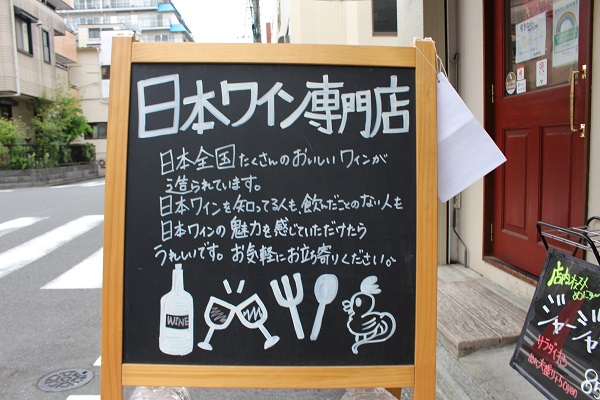 日本ワイン専門店
日本全国たくさんのおいしいワインが
造られています。
日本ワインを知ってる人も、飲んだことのない人も
日本ワインの魅力を感じていただけたら
うれしいです。お気軽にお立ち寄りください。
WINE
店内おススメ
めにゅー
ジャージャ
サラダ